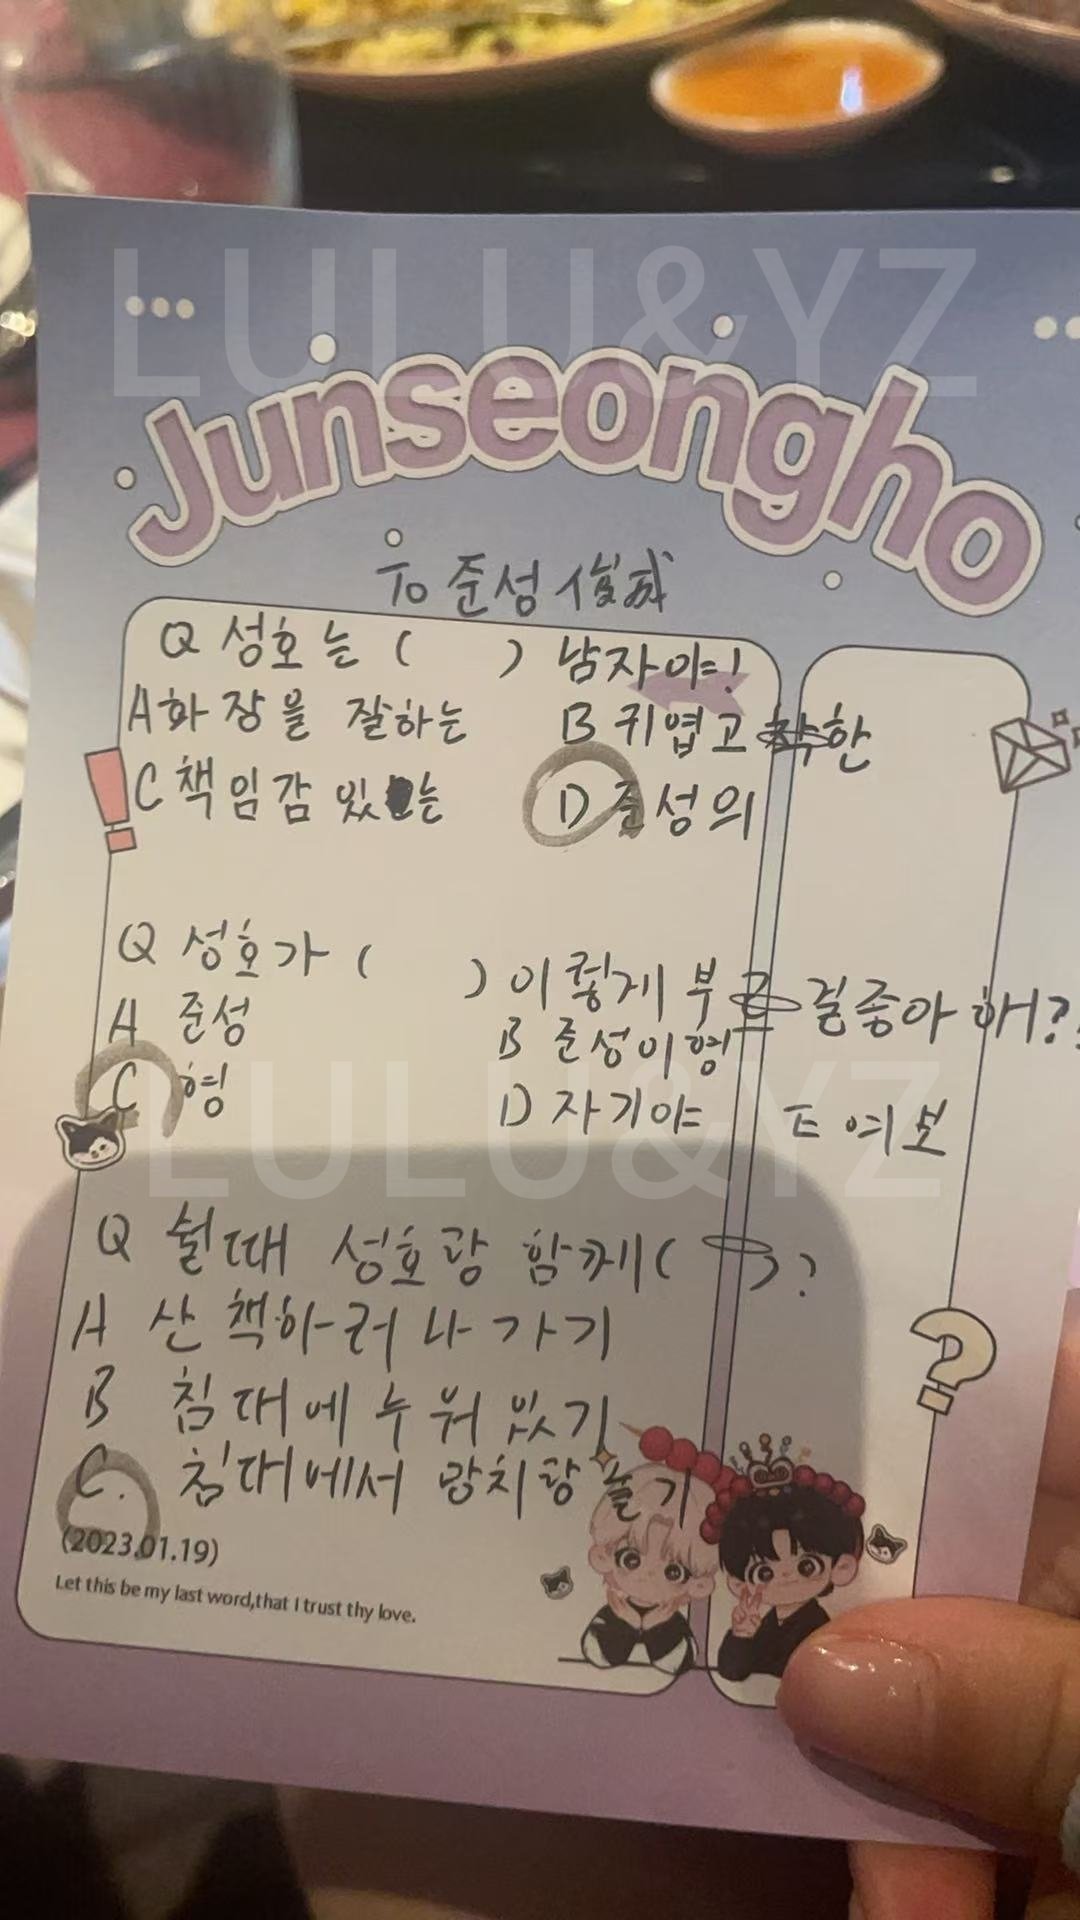 LULU&YZ
Junseongho
To 준성 俊成
Q 성호는 ( ) 남자야!
A 화장을 잘하는 B 귀엽고 착한
C 책임감 있는 D 준성의
Q 성호가 ( ) 이렇게 부르 걸 좋아해?
A 준성 B 준성이형
C 형 D 자기야 E 여보
LULU&YZ
Q 쉴때 성호랑 함께 ( )?
A 산책하러 나가기
B 침대에 누워 있기
C. 침대에서 망치랑 놀기
(2023.01.19)
Let this be my last word,that I trust thy love.